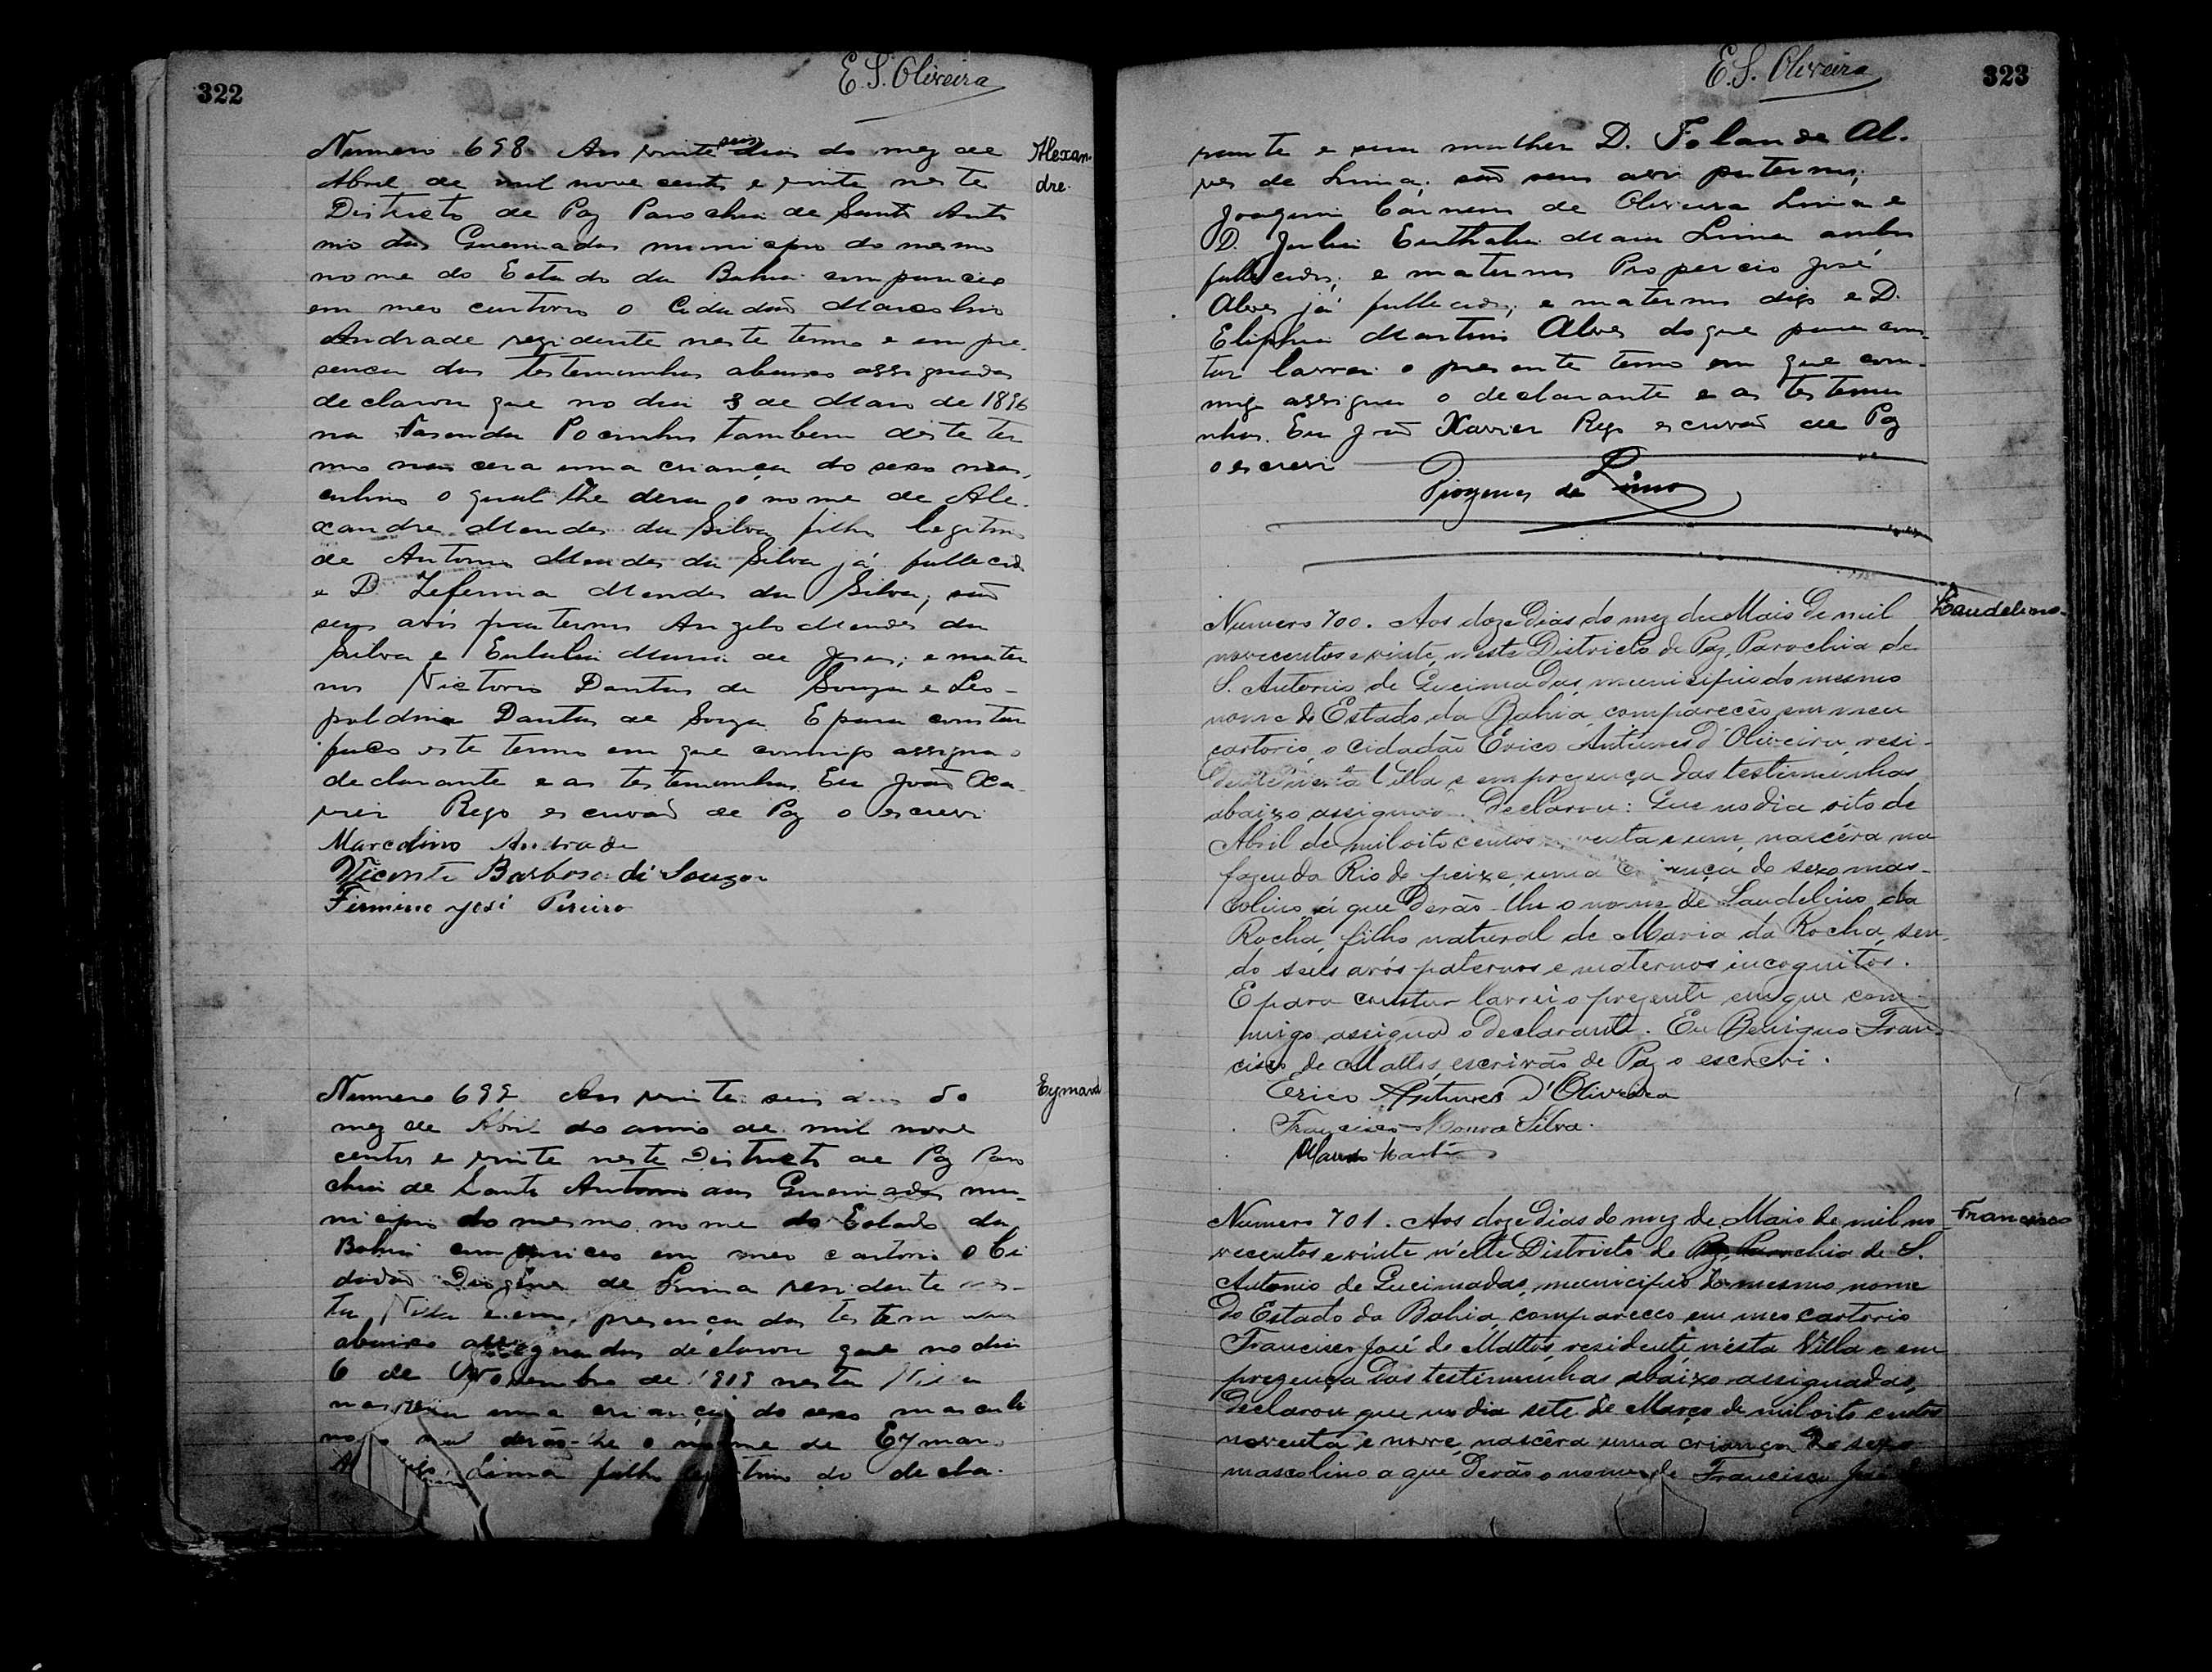 322
E. S. Oliveira
Alexan-
dre.
Numero 698 Aos vinte seis dias do mez de
Abril de mil nove cento e vinte neste
Districto de Paz Parochia de Santo Anto
nio das Queimadas municipio do mesmo
nome do Estado da Bahia compareceo
em meo cartorio o Cidadão Marcolino
Andrade rezidente neste termo e em pre-
senca das testemunhas abaixo assignadas
declarou que no dia 3 de Maio de 1896
na Fasenda Pocinhos tambem deste ter
mo nascera uma criança do sexo mas-
culino o qual lhe dera o nome de Ale-
xandre Mendes da Silva filho legitimo
de Antonio Mendes da Silva já fallecido
e D. Zeferina Mendes da Silva, são
seus avós paternos Angelo Mendes da
Silva e Eulalia Maria de Jesus; e mater
nos Victorio Dantas de Souza e Leo-
poldina Dantas de Souza. E para constar
faço este termo em que commigo assigna o
declarante e as testemunhas. Eu João Xa-
vier Rego escrivão de Paz o escrevi
Marcolino Andrade
Vicente Barbosa di Souza
Firmino José Pereira
Eymard
Numero 699 Aos vinte seis dias do
mez de Abril do anno de mil nove
centos e vinte neste Districto de Paz Paro
chia de Santo Antonio das Queimadas mu-
nicipio do mesmo nome do Estado da
Bahia compareceo em meo cartorio o Ci
dadão Diogenes de Lima residente nes-
ta Villa e em presença das testemunhas
abaixo assignadas declarou que no dia
6 de Novembro de 1919 nesta Villa
nascera uma criança do sexo masculi
no o qual derão-lhe o nome de Eymar
Lima filho legitimo do decla-
323
E. S. Oliveira
rante e sua mulher D. Iolanda Al-
ves de Lima; são seus avós paternos;
Joaquim Carneiro de Oliveira Lima e
D. Julia Euthalia Maia Lima ambos
fallecidos; e maternos Propercio José
Alves já fallecido; e maternos digo e D.
Eliphia Martins Alves do que para cons-
tar lavrei o presente termo em que com-
migo assigna o declarante e as testemu
nhas. Eu João Xavier Rego escrivão de Paz
o escrevi
Diogenes de Lima
Laudelino
Numero 700. Aos doze dias do mez de Maio de mil
novecentos e vinte, n'este Districto de Paz, Parochia de
S. Antonio de Queimadas, municipio do mesmo
nome do Estado da Bahia, compareceo em meu
cartorio, o cidadão Erico Antunes d'Oliveira, resi-
dente nesta Villa, e em prezença das testimunhas
abaixo assignad. Declarou: Que no dia oito de
Abril de mil oito centos noventa e um, nascêra na
fazenda Rio do peixe, uma criança do sexo mas-
colino, á que derão-lhe o nome de Laudelino da
Rocha, filho natural de Maria da Rocha, sen-
do seus avós paternos e maternos incognitos.
E para constar lavrei o prezente em que com-
migo assigna o declarante. Eu Benigno Fran-
cisco de Mattos, escrivão de Paz o escrevi.
Erico Antunes d'Oliveira
Francisco Moura Silva.
Francisco
Numero 701. Aos doze dias do mez de Maio de mil no
vecentos e vinte n'este Districto de Paz, Parochia de S.
Antonio de Queimadas, municipio do mesmo nome
do Estado da Bahia, compareceo em meo cartorio
Francisco José de Mattos, residente n'ésta Villa e em
prezença das testimunhas abaixo assignadas,
declarou que no dia sete de Março de mil oito centos
noventa e nove, nascêra uma criança do sexo
mascolino a que derão o nome de Francisco José